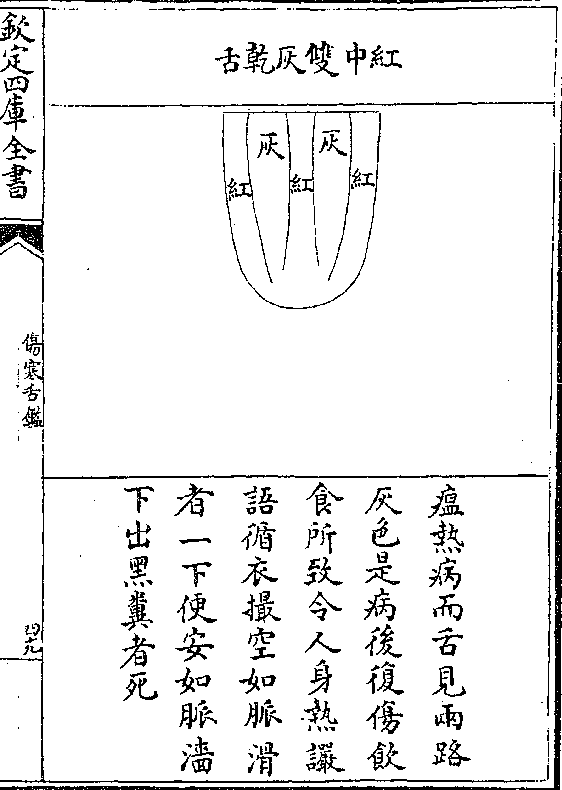 紅中雙灰乾舌
紅
灰
紅
灰
紅
瘟熱病而舌見兩路
灰色是病後復傷飲
食所致令人身熱讝
語循衣撮空如脈滑
者一下便安如脈濇
下出黑糞者死
欽定四庫全書
傷寒舌鑑
四九